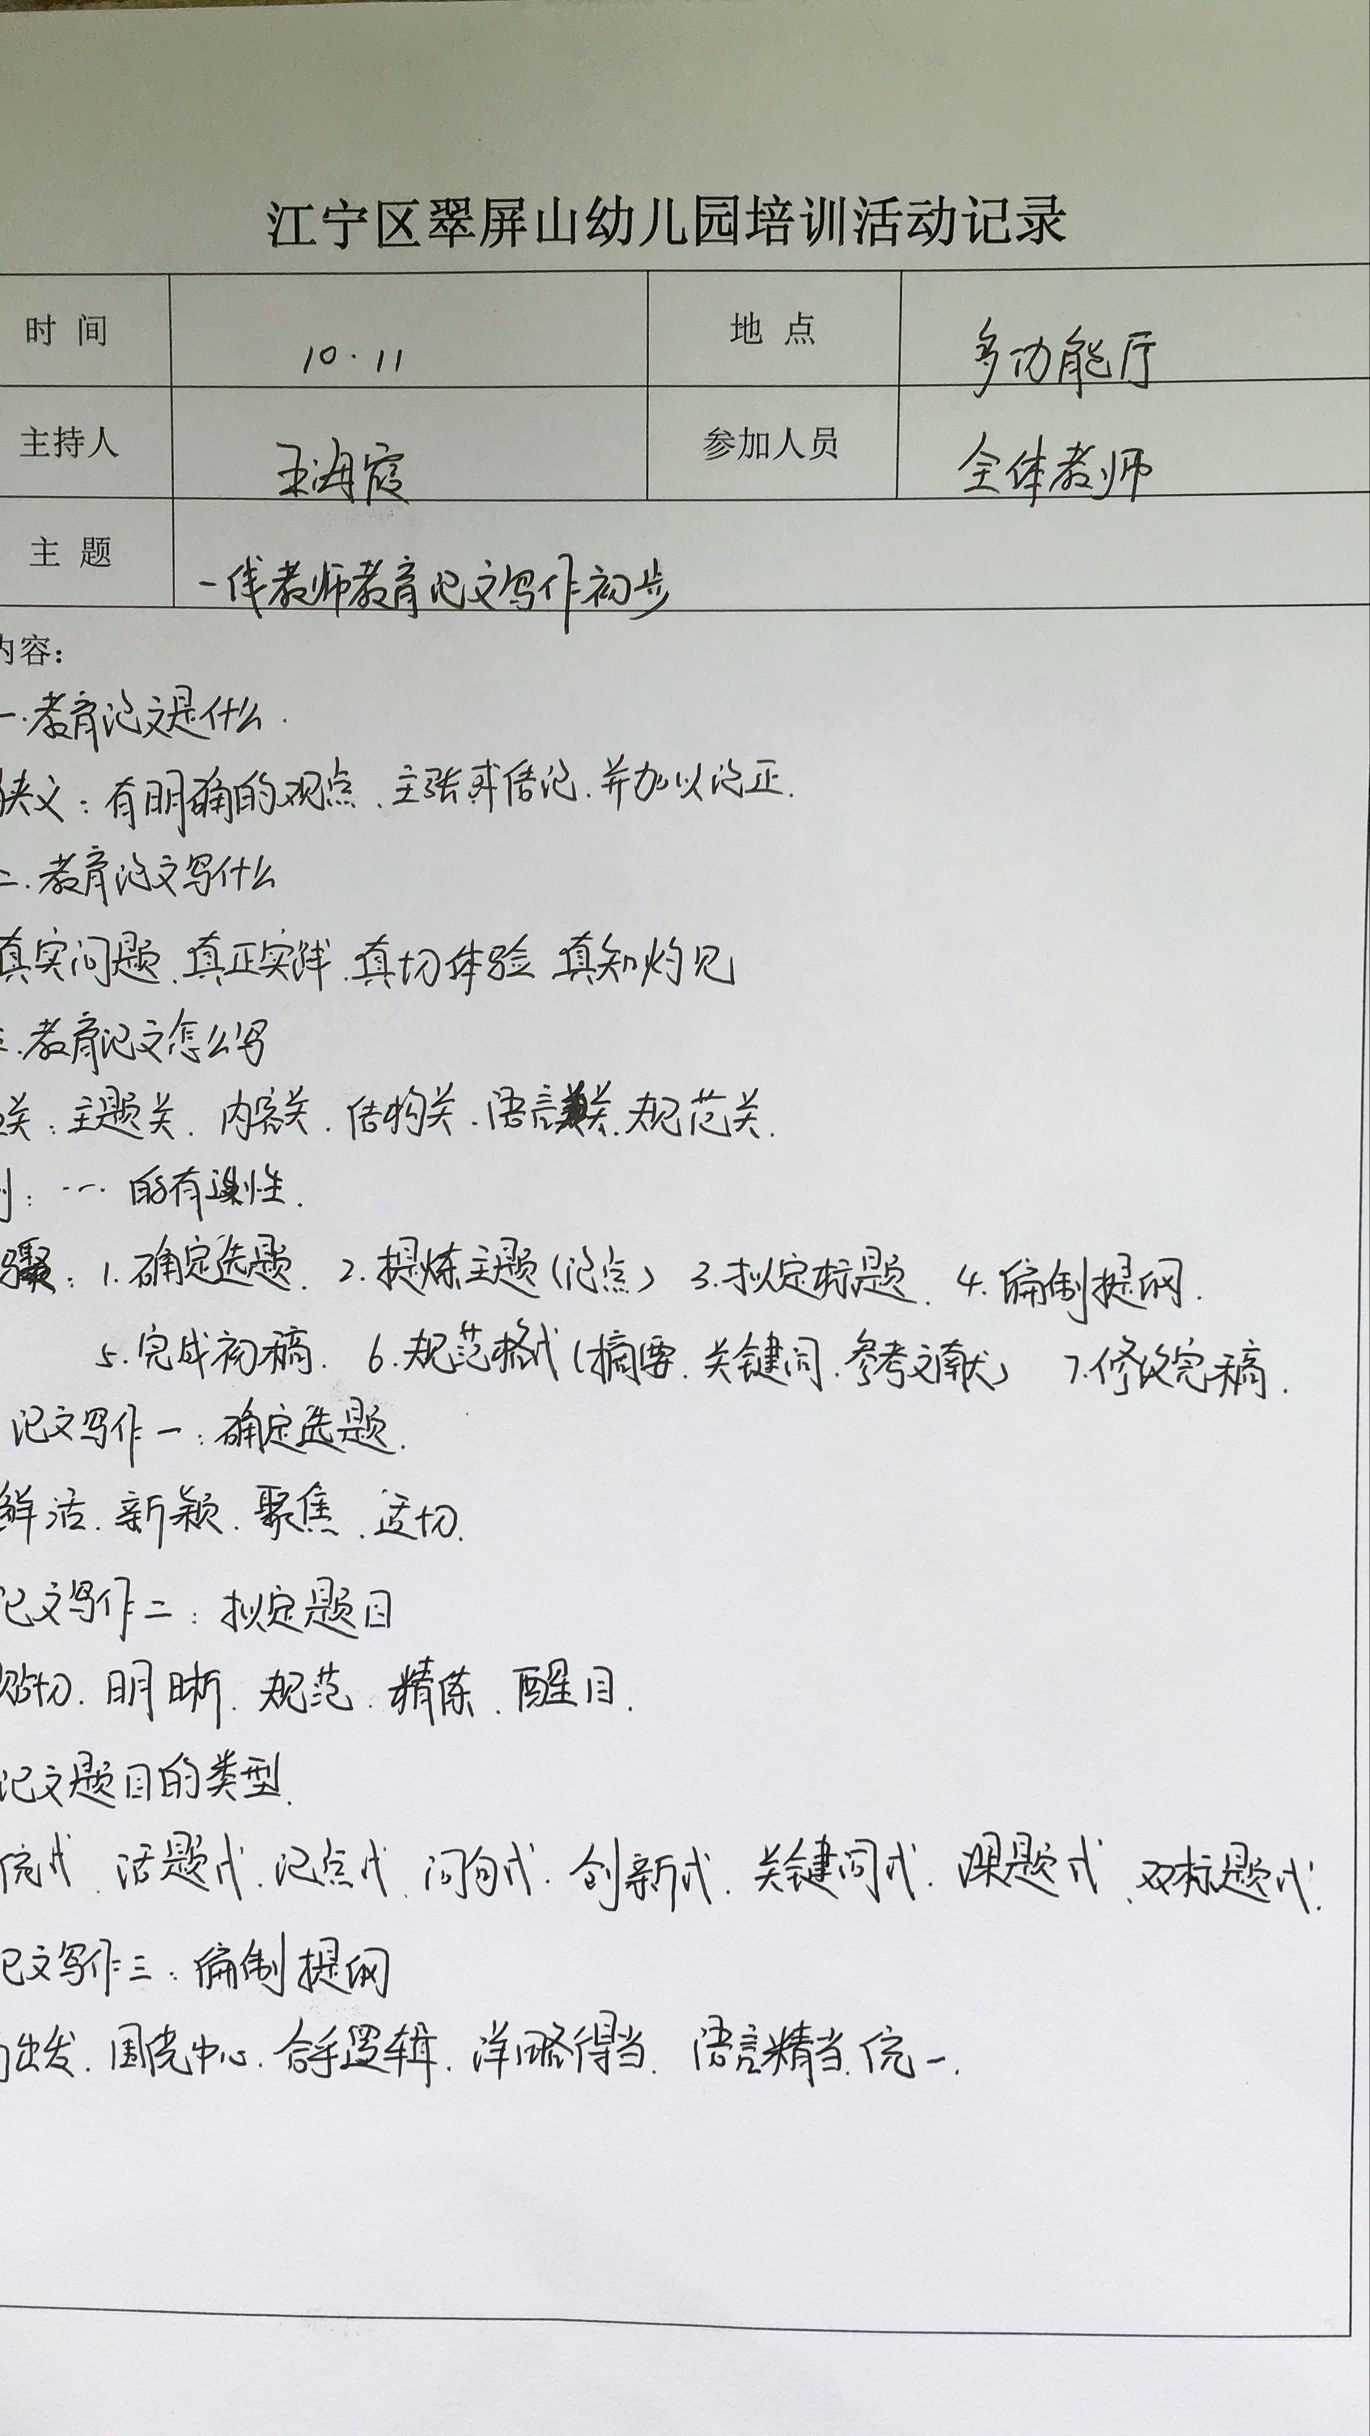 江宁区翠屏山幼儿园培训活动记录
时 间 10.11 地 点 多功能厅
主持人 王海霞 参加人员 全体教师
主 题 一线教师教育论文写作初步
内容：
一.教育论文是什么.
狭义：有明确的观点、主张或结论.并加以论证.
二.教育论文写什么
真实问题、真正实践、真切体验 真知灼见
三.教育论文怎么写
关：主题关、内容关、结构关、语言关、规范关.
：…的有效性.
骤：1.确定选题、2.提炼主题(论点) 3.拟定标题、4.编制提纲.
5.完成初稿. 6.规范格式(摘要、关键词、参考文献) 7.修改完稿.
论文写作一：确定选题.
鲜活、新颖、聚焦、适切.
论文写作二：拟定题目
贴切、明晰、规范、精练、醒目.
论文题目的类型.
统式、话题式、论点式、问句式、创新式、关键词式、课题式、双标题式.
论文写作三：编制提纲
出发、围绕中心、合乎逻辑、详略得当、语言精当、统一.